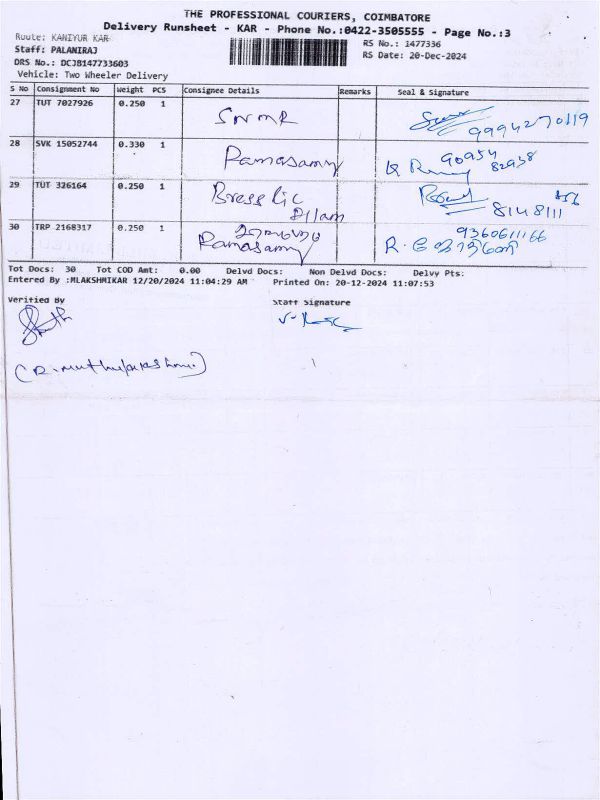 THE PROFESSIONAL COURIERS, COIMBATORE
Delivery Runsheet - KAR - Phone No.:0422-3505555 - Page No.:3
Route: KANIYUR KAR
RS No.: 1477336
Staff: PALANIRAJ
RS Date: 20-Dec-2024
DRS No.: DCJB147733603
Vehicle: Two Wheeler Delivery
S No Consignment No Weight PCS Consignee Details Remarks Seal & Signature
27 TUT 7027926 0.250 1 SNMR 9994270119
28 SVK 15052744 0.330 1 Ramasamy 90954 82938
29 TUT 326164 0.250 1 8148111
30 TRP 2168317 0.250 1 Ramasamy 9360611166
Tot Docs: 30 Tot COD Amt: 0.00 Delvd Docs: Non Delvd Docs: Delvy Pts:
Entered By :MLAKSHMIKAR 12/20/2024 11:04:29 AM Printed On: 20-12-2024 11:07:53
Verified By
Staff Signature